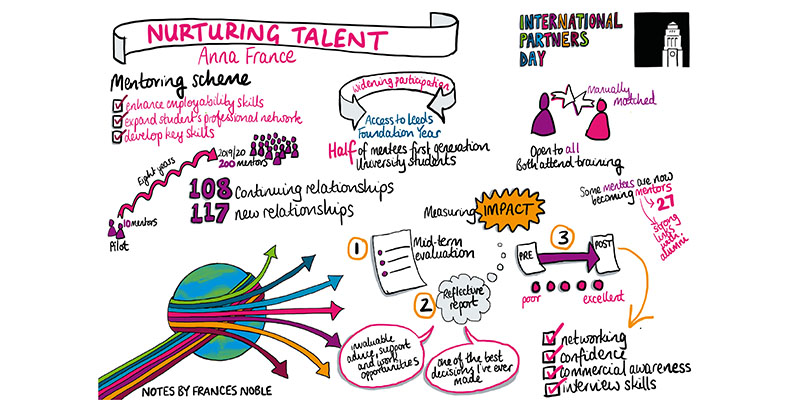 NURTURING TALENT
Anna France
INTERNATIONAL
PARTNERS
DAY
Mentoring scheme
enhance employability skills
expand student's professional network
develop key skills
widening participation
Access to Leeds
Foundation Year
Half of mentees first generation
University students
manually
matched
Open to all
Both attend training
Eight years
2019/20
200 mentors
10 mentors
Pilot
108 Continuing relationships
117 new relationships
Some mentees are now
becoming mentors
27
strong
links
with
alumni
Measuring IMPACT
1
Mid-term
evaluation
2
Reflective
report
3
PRE
POST
poor
excellent
invaluable
advice, support
and work
opportunities
one of the best
decisions I've ever
made
networking
confidence
commercial awareness
interview skills
NOTES BY FRANCES NOBLE